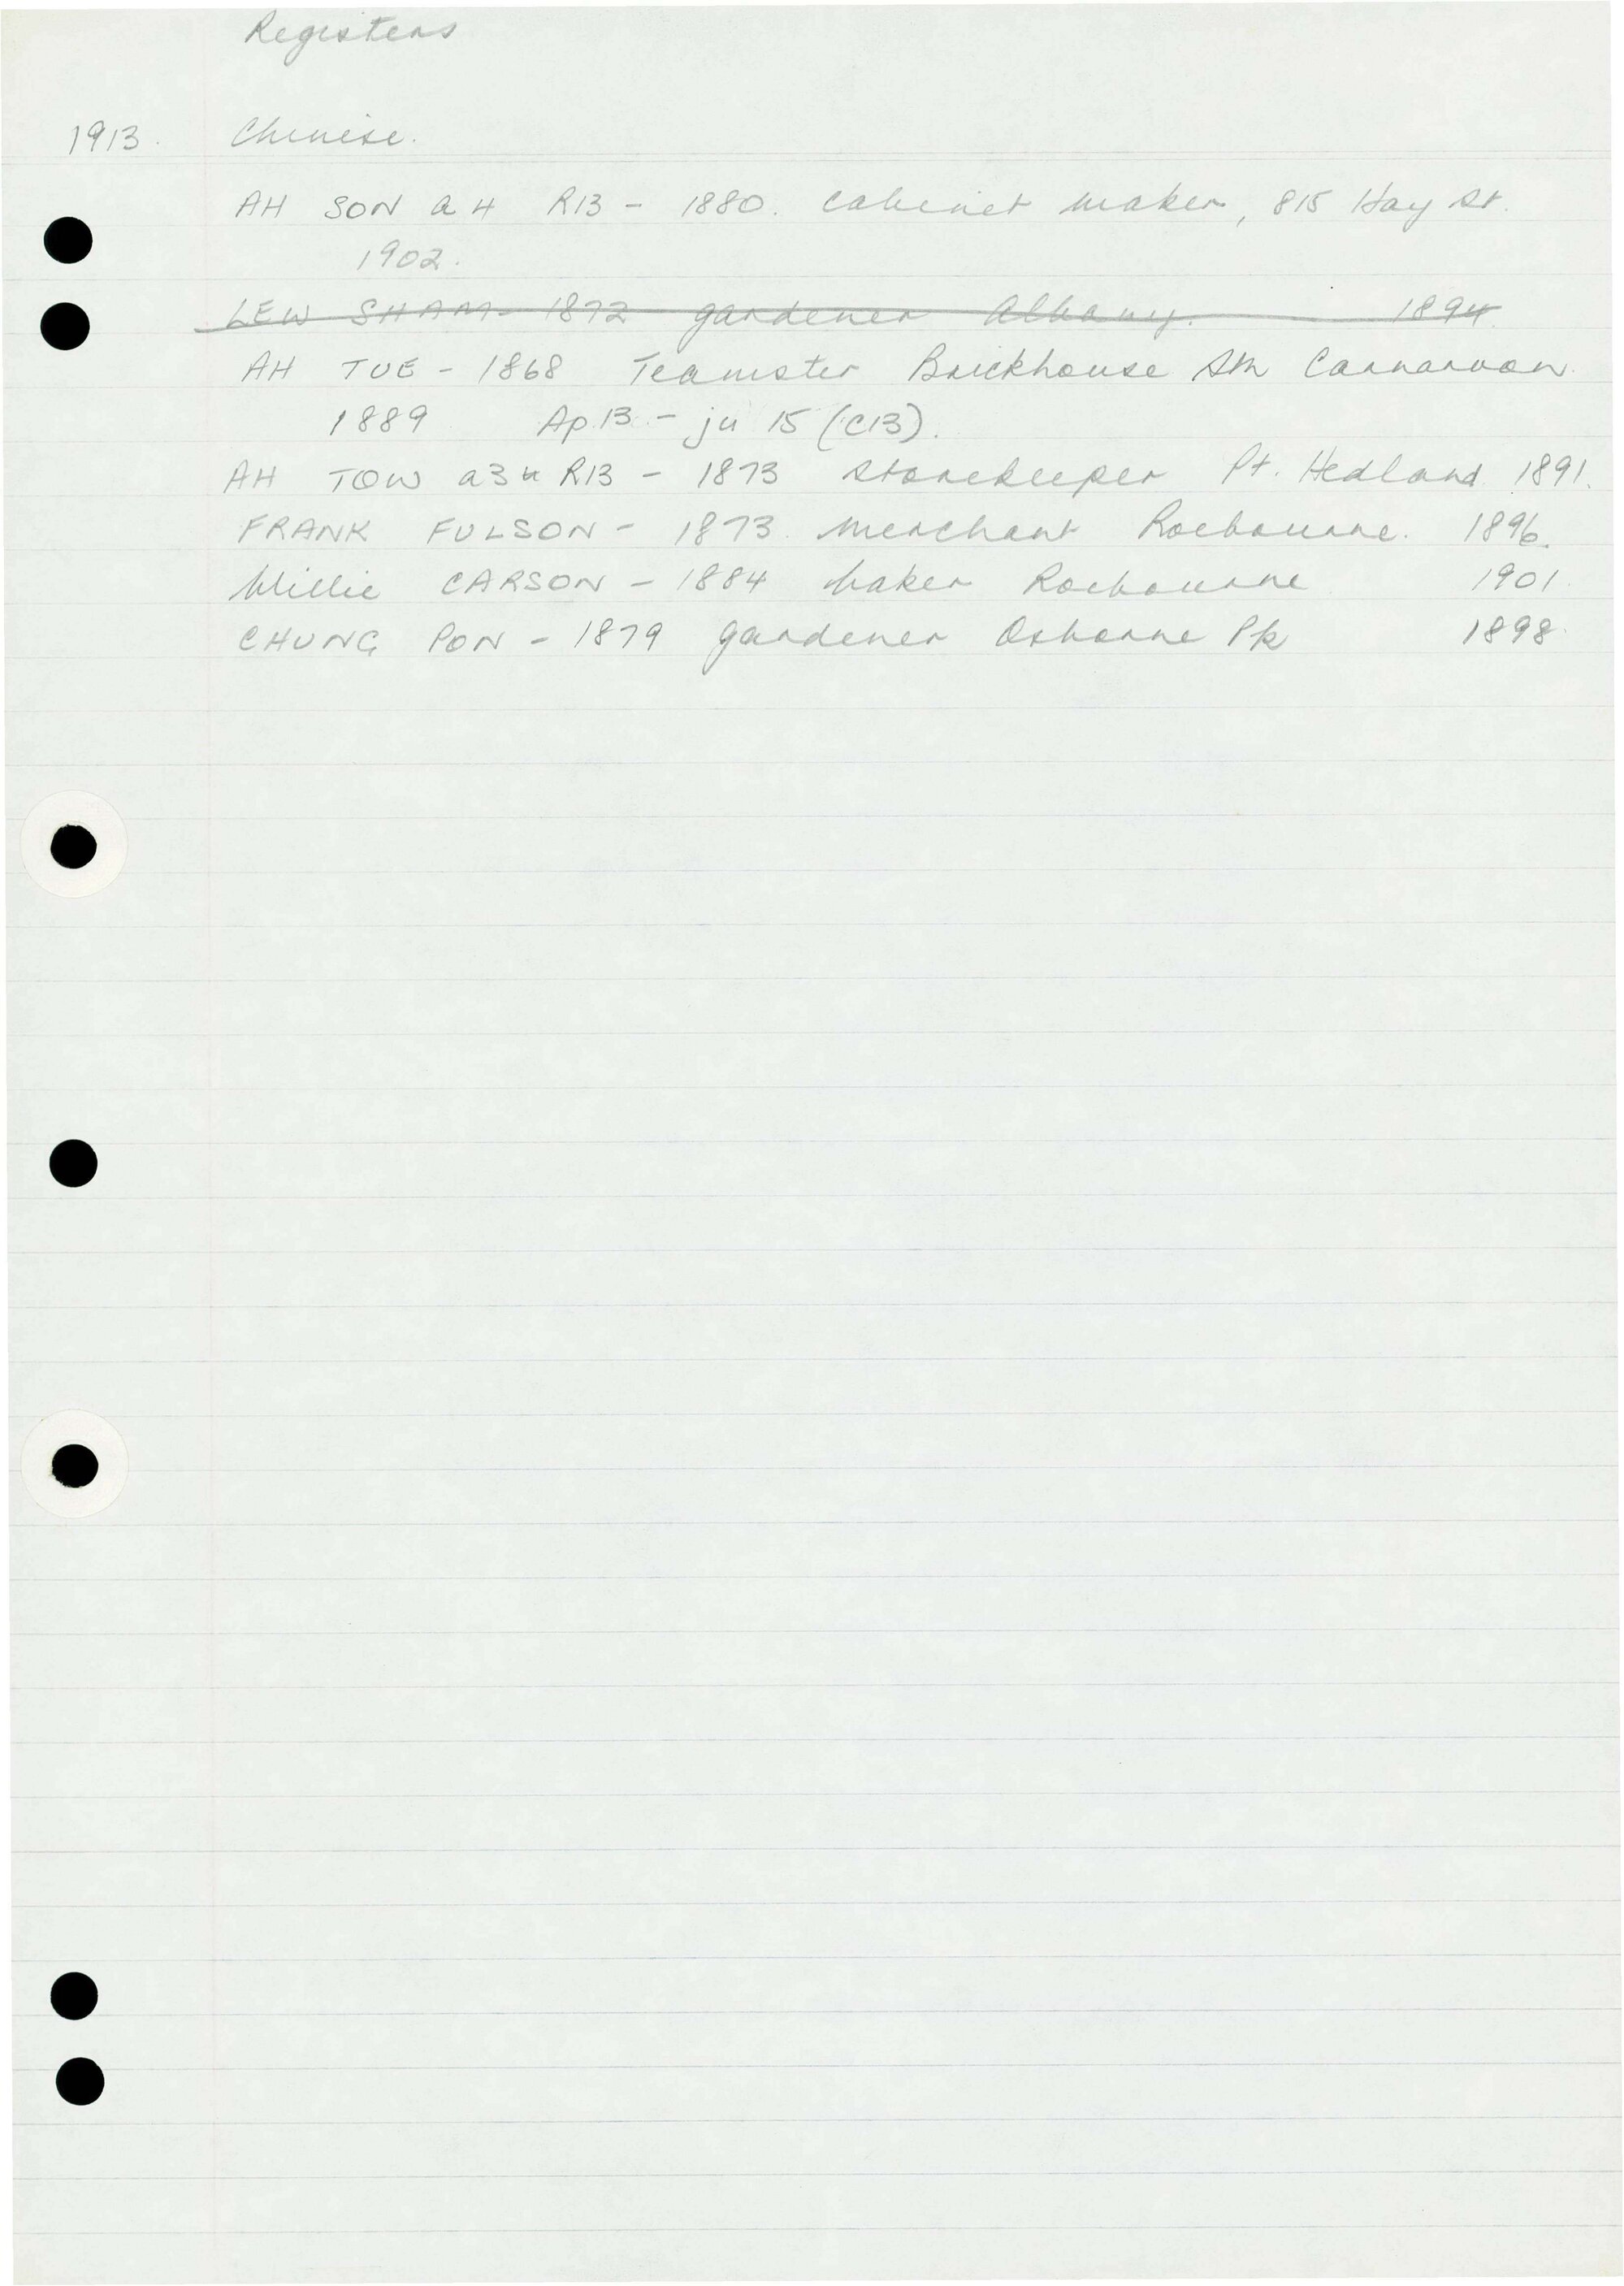 Registers
1913. Chinese.
AH SON a 4 R13 - 1880. Cabinet maker, 815 Hay St.
1902.
LEW SHAM - 1872 gardener Albany. 1894.
AH TUE - 1868 Teamster Brickhouse Stn Carnarvon.
1889 Ap.13 - ju 15 (C13).
AH TOW a34 R13 - 1873 storekeeper Pt. Hedland 1891.
FRANK FULSON - 1873. merchant Roebourne. 1896.
Willie CARSON - 1884 baker Roebourne 1901.
CHUNG PON - 1879 gardener Osborne Pk 1898.